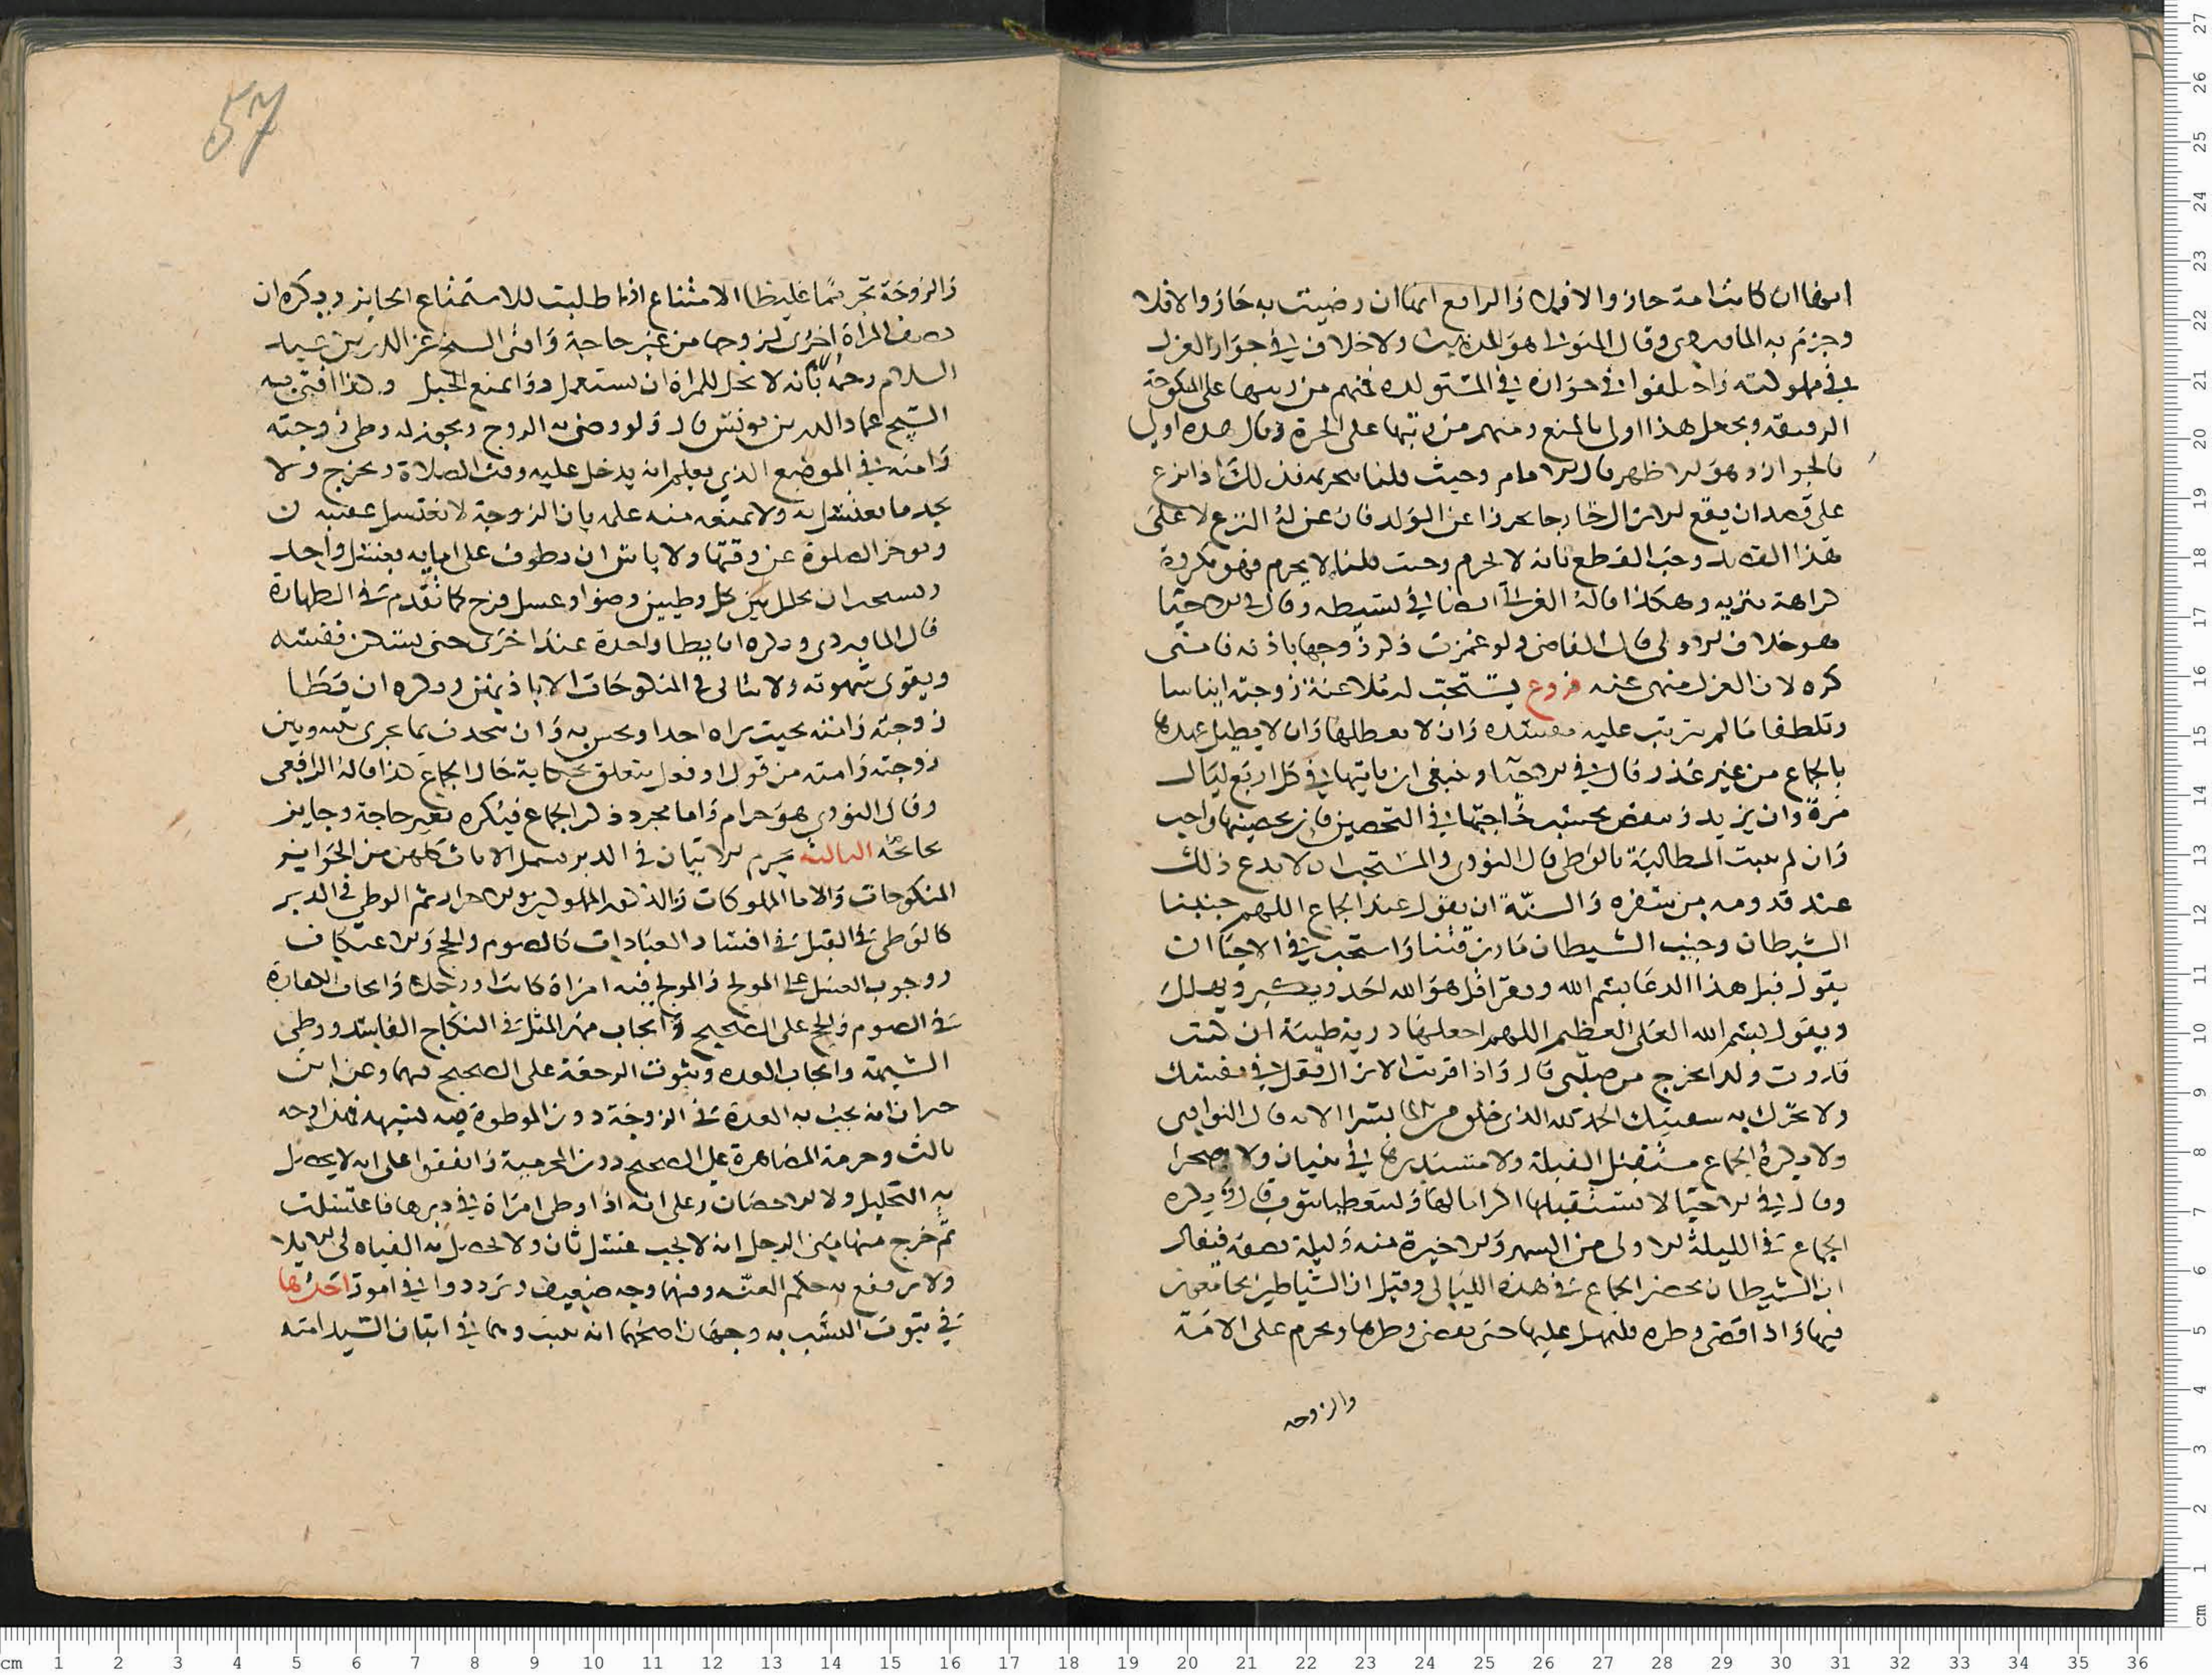 ايضا ان كانت امة جاز والا فلا والرابع انها ان رضيت به جاز والا فلا
وجزم به الماوردي وقال المتولي هو المذهب ولا خلاف في جواز العزل
في مملوكته واختلفوا في جوازه في المستولدة فمنهم من رتبها على المنكوحة
الرقيقة وجعل هذا اولى بالمنع ومنهم من رتبها على الحرة وقال هذه اولى
بالجواز وهو الاظهر قال الامام وحيث قلنا بتحريمه فذلك اذا نزع
على قصد ان يقع الانزال خارجا تحرزا عن الولد فان عن له النزع لا على
هذا القصد وجب القطع بانه لا يحرم وحيث قلنا لا يحرم فهو مكروه
كراهة تنزيه وهكذا قاله الغزالي ايضا في بسيطه وقال في الاحيا
هو خلاف الاولى قال القاضي ولو غمزت ذكر زوجها باذنه فامنى
كره لان العزل منهي عنه فروع يستحب له ملاعبة زوجته ايناسا
وتلطفا ما لم يترتب عليه مفسدة وان لا يعطلها وان لا يطيل عهدها
بالجماع من غير عذر قال في الاحيا وينبغي ان ياتيها في كل اربع ليال
مرة وان يزيد وينقص بحسب حاجتها في التحصين فان تحصينها واجب
وان لم يثبت المطالبة بالوطي قال النووي والمستحب ان لا يدع ذلك
عند قدومه من سفره والسنة ان يقول عند الجماع اللهم جنبنا
الشيطان وجنب الشيطان ما رزقتنا واستحب في الاحيا ان
يقول قبل هذا الدعا بسم الله ويقرا قل هو الله احد ويكبر ويهلل
ويقول بسم الله العلي العظيم اللهم اجعلها ذرية طيبة ان كنت
قدرت ولدا يخرج من صلبي قال واذا قربت الانزال فقل في نفسك
ولا تحرك به شفتيك الحمد لله الذي خلق من الما بشرا الاية قال النواوي
ولا يكره الجماع مستقبل القبلة ولا مستدبرها في بنيان ولا صحرا
وقال في الاحيا لا يستقبلها اكراما لها وليتغطيا بثوب قال ويكره
الجماع في الليلة الاولى من الشهر والاخيرة منه وليلة نصفه فيقال
ان الشيطان يحضر الجماع في هذه الليالي وقيل ان الشياطين يجامعون
فيها واذا قضى وطره فليمهل عليها حتى تقضي وطرها ويحرم على الامة
والزوجه
57
والزوجة تحريما غليظا الامتناع اذا طلبت للاستمتاع الجايز ويكره ان
تصف المراة اخرى لزوجها من غير حاجة وافتى الشيخ عز الدين بن عبد
السلام رحمه الله بانه لا يحل للمراة ان تستعمل دوا يمنع الحبل وبهذا افتى به
الشيخ عماد الدين بن يونس قال ولو رضي به الزوج ويجوز له وطي زوجته
وامته في الموضع الذي يعلم انه يدخل عليه وقت الصلاة ويخرج ولا
يجد ما يغتسل به ولا يمنعه منه علمه بان الزوجة لا تغتسل عقيبه
وتوخر الصلوة عن وقتها ولا باس ان يطوف على امايه بغسل واحد
ويستحب ان يخلل بين كل وطيين وضوا وغسل فرج كما تقدم في الطهارة
قال الماوردي ويكره ان يطا واحدة عند اخرى حتى تسكن نفسه
ويقوى شهوته ولا يتاتى في المنكوحات الا باذنهن ويكره ان يطا
زوجته وامته بحيث يراه احد او يحس به وان يتحدث بما جرى بينه وبين
زوجته وامته من قول او فعل يتعلق بحكاية حال الجماع هذا قاله الرافعي
وقال النووي هو حرام واما مجرد ذكر الجماع فيكره بغير حاجة وجايز
بحاجة الثالثة يحرم الاتيان في الدبر يشمل الاناث كلهن من الحراير
المنكوحات والاما المملوكات والذكور المملوكين والاحرار ثم الوطي في الدبر
كالوطي في القبل في افساد العبادات كالصوم والحج والاعتكاف
ووجوب الغسل على المولج والمولج فيه امراة كانت او رجلا وايجاب الكفارة
في الصوم والحج على الصحيح وايجاب مهر المثل في النكاح الفاسد ووطي
الشبهة وايجاب العدة وثبوت الرجعة على الصحيح فيهما وعن ابن
خيران انه يجب به العدة في الزوجة دون الموطوة فيه لشبهة فهذا وجه
ثالث وحرمة المصاهرة على الصحيح دون المحرمية واتفقوا على انه لا يحصل
به التحليل ولا الاحصان وعلى انه اذا وطي امراة في دبرها فاغتسلت
ثم خرج منها مني الرجل انه لا يجب غسل ثان ولا تحصل به الفياة في الايلا
ولا يرتفع به حكم العنة وفيهما وجه ضعيف وترددوا في امور احدها
في ثبوت النسب به وجهان اصحهما انه يثبت وهما في اتيان السيد امته